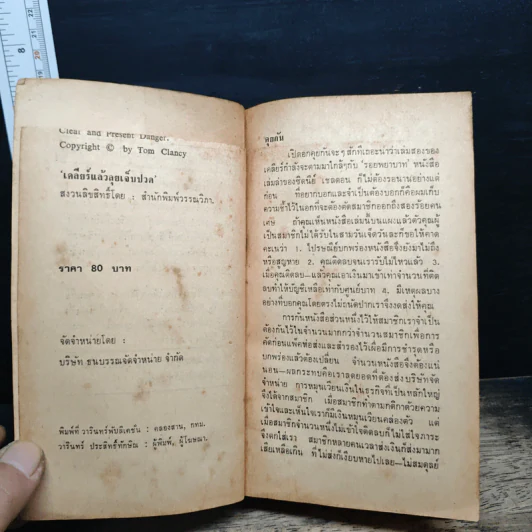 8
20
Clear and Present Danger.
Copyright © by Tom Clancy
'เคลียร์แล้วลุยเจ็บปวด'
สงวนลิขสิทธิ์โดย : สำนักพิมพ์วรรณวิภา.
ราคา 80 บาท
จัดจำหน่ายโดย :
บริษัท ธนบรรณจัดจำหน่าย จำกัด
พิมพ์ที่ วารินทร์พับลิเคชั่น : คลองสาน, กทม.
วารินทร์ ประสิทธิ์ทักษิณ : ผู้พิมพ์, ผู้โฆษณา.
คุยกัน
เปิดอกคุยกันจะๆ สักทีเถอะน่าว่าเล่มสองของ
เคลียร์กำลังจะตามมาใกล้ๆกับ 'รอยพยาบาท' หนังสือ
เล่มล่าของซิดนีย์ เชลดอน ก็ไม่ต้องรอนานอย่างแต่
ก่อน ที่อยากบอกและจำเป็นต้องบอกก็คือผมเก็บ
ความช้ำไว้ในอกที่จะต้องคัดสมาชิกออกถึงสองร้อยคน
เศษ ถ้าคุณเห็นหนังสือเล่มนั้นบนแผงแล้วตัวคุณผู้
เป็นสมาชิกไม่ได้รับในสามวันเจ็ดวันละก็ขอให้คาด
คะเนว่า 1. ไปรษณีย์บกพร่องหนังสือจึงยังมาไม่ถึง
หรือสูญหาย 2. คุณติดลบจนเรารับไม่ไหวแล้ว 3.
เมื่อคุณติดลบ—แล้วคุณเอาเงินมาเข้าเท่าจำนวนที่ติด
ลบทำให้บัญชีเหลือเท่ากับศูนย์บาท 4. มีเหตุผลบาง
อย่างที่บอกคุณโดยตรงไม่ถนัดปากเราจึงงดส่งให้คุณ
การกันหนังสือส่วนหนึ่งไว้ให้สมาชิกเราจำเป็น
ต้องกันไว้ในจำนวนมากกว่าจำนวนสมาชิกเพื่อการ
คัดก่อนแพ็คห่อส่งและสำรองไว้เผื่อมีการชำรุดหรือ
บกพร่องแล้วต้องเปลี่ยน จำนวนหนังสือจึงต้องแน่
นอน—ผลกระทบคือเราลดยอดที่ต้องส่งบริษัทจัด
จำหน่าย การหมุนเวียนเงินในธุรกิจที่เป็นหลักใหญ่
จึงได้จากสมาชิก เมื่อสมาชิกทำตามกติกาด้วยความ
เข้าใจและเห็นใจเราก็มีเงินหมุนเวียนคล่องตัว แต่
เมื่อสมาชิกจำนวนหนึ่งไม่เข้าใจติดลบก็ไม่ใส่ใจภาระ
จึงตกใส่เรา สมาชิกหลายคนเวลาส่งเงินก็ส่งมามาก
เสียเหลือเกิน ที่ไม่ส่งก็เงียบหายไปเลย—ไม่สมดุลย์